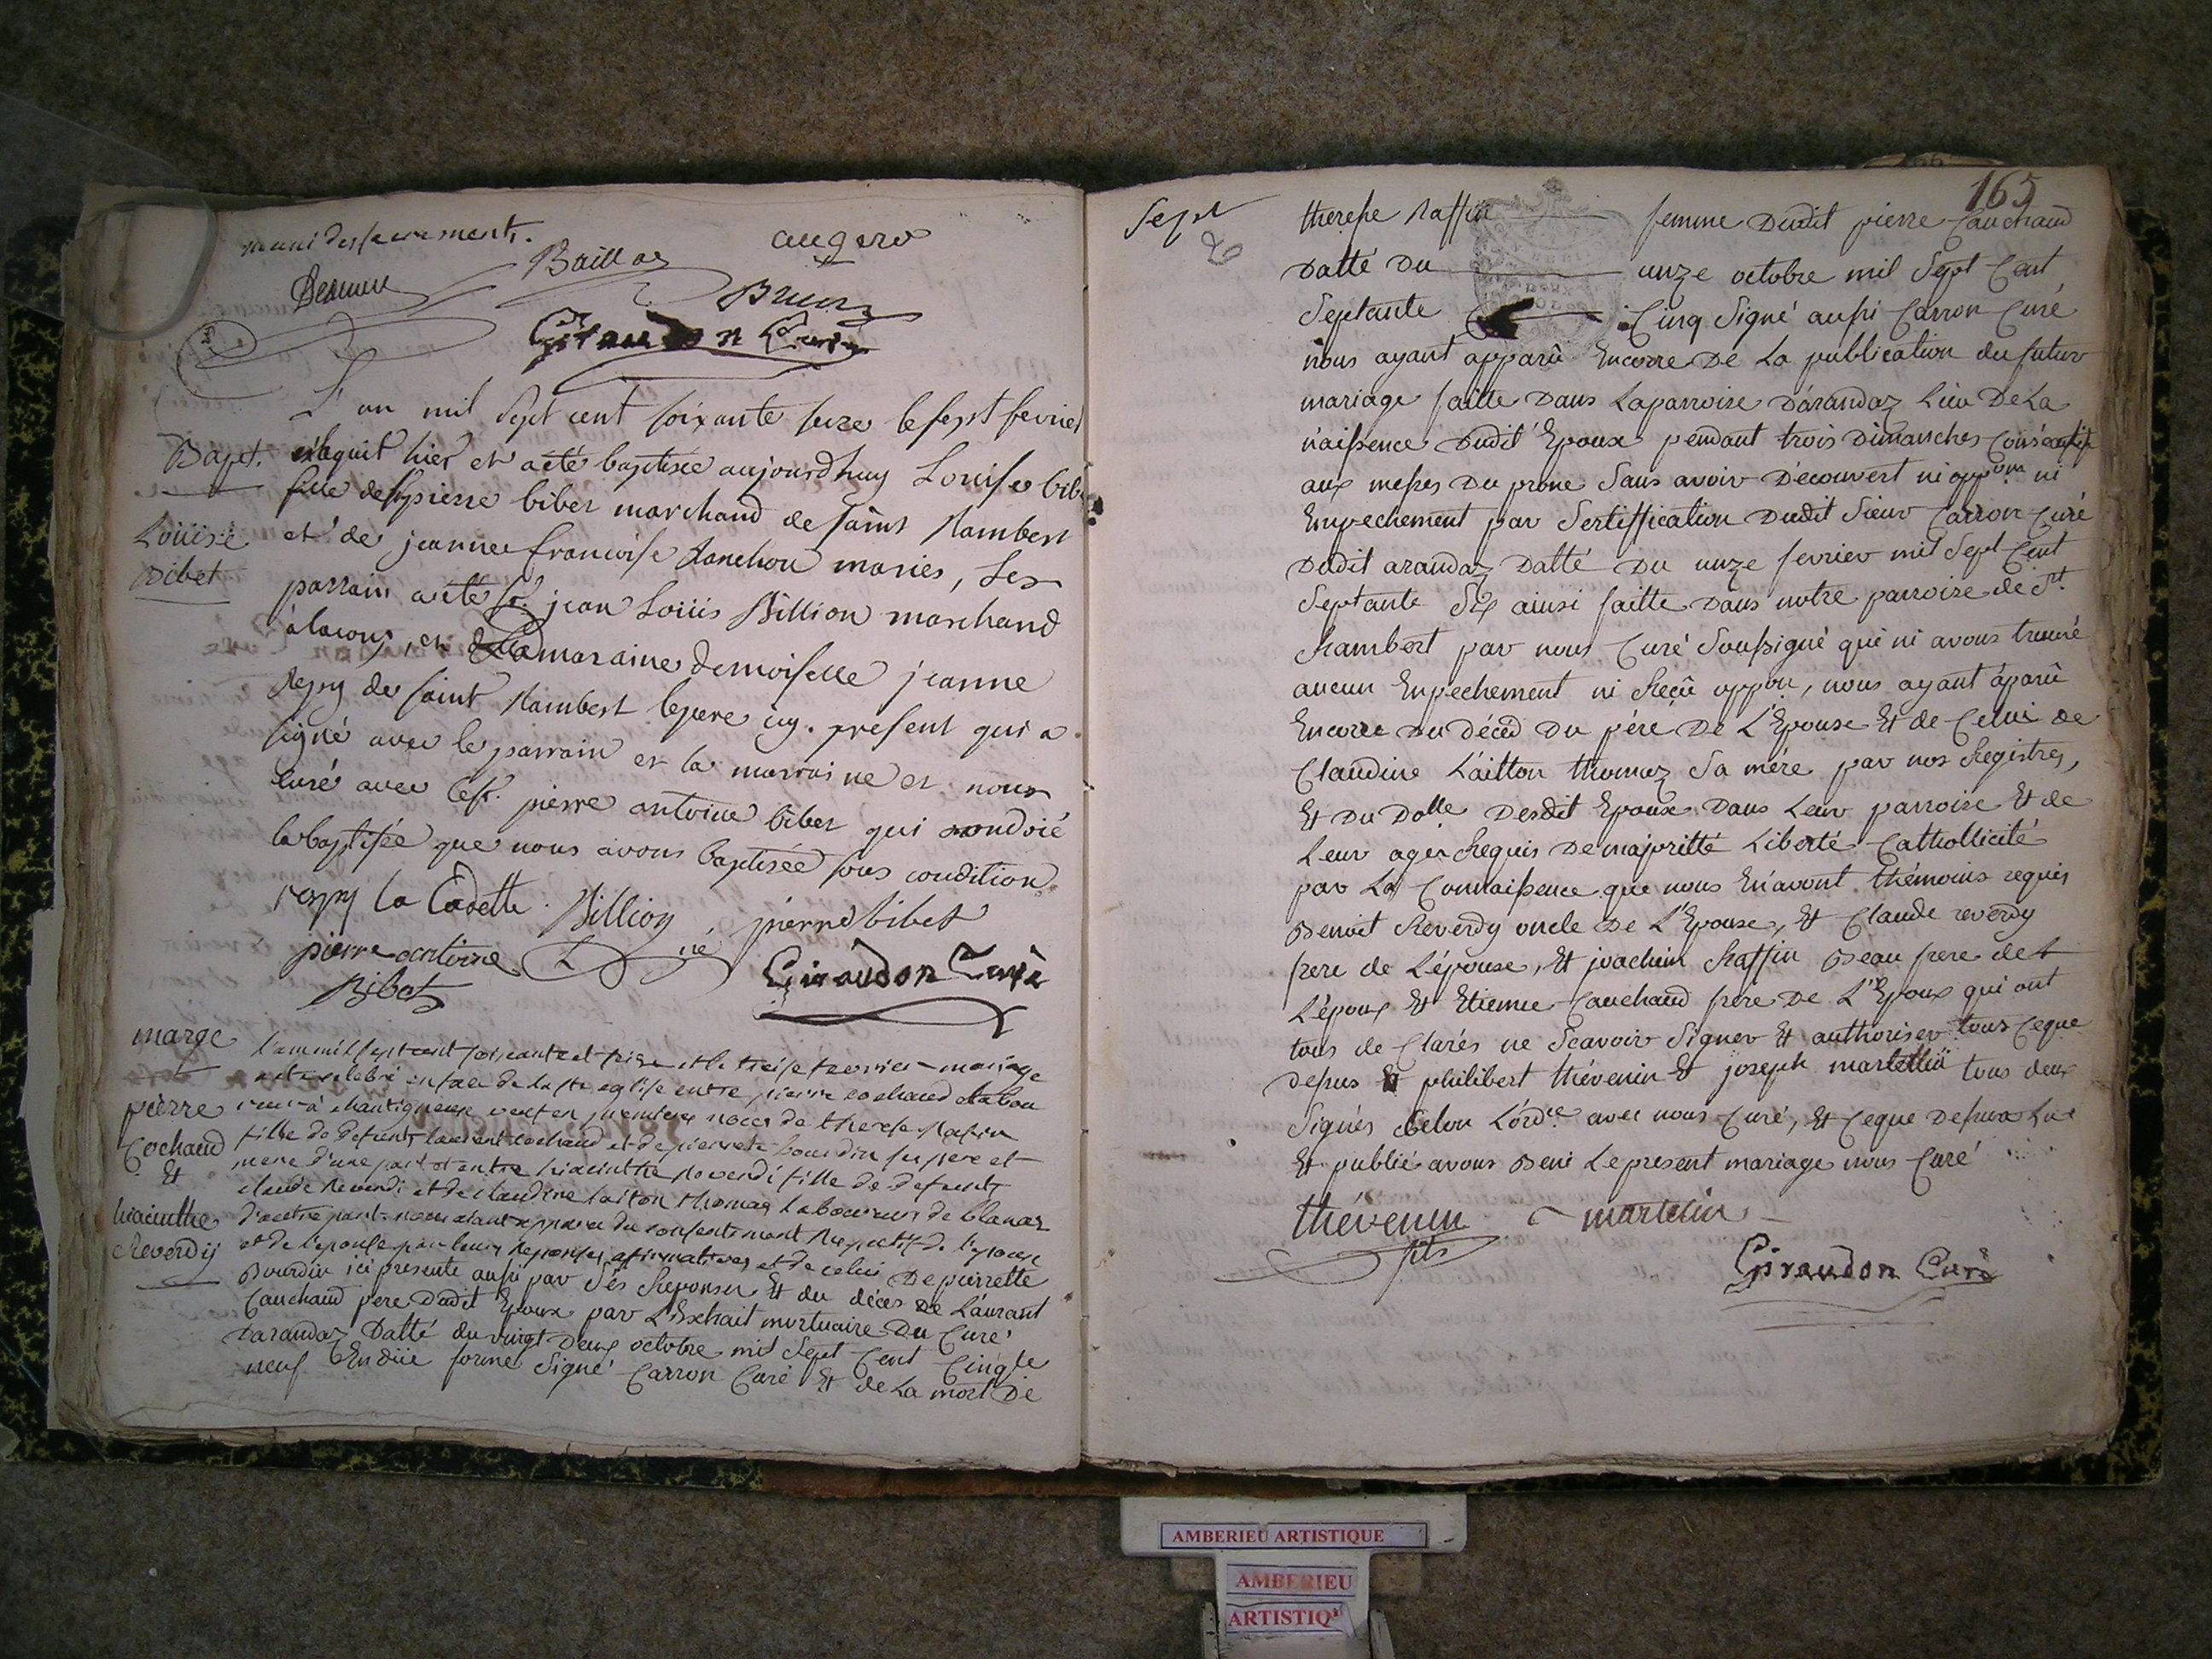 muni des sacrements.
Baillat
augero
Brun
Giraudon Curé
L'an mil sept cent soixante seize le sept fevrier
Bapt.
naquit hier et a été baptisée aujourdhuy Louise bibet
fille de sr pierre bibet marchand de saint Rambert
Loüise
Bibet
et de jeanne francoise Janchon mariés, ses
parrain a été sr. jean Loüis Billion marchand
et La maraine demoiselle jeanne
de saint Rambert le pere icy. present qui a
signé avec le parrain et la marraine et nous
curé avec le sr. pierre antoine bibet qui ondoié
la baptisée que nous avons baptisée sous condition
respy la Cadette. Billion pierre bibet
pierre antoine
Bibet
Giraudon Curé
marge
pierre
Cochaud
Et
hiacinthe
Reverdij
l'an mil sept cent soixante et seize et le treise fevrier mariage
a été celebré en face de la ste eglise entre pierre cochaud
a chantigneux veuf en premiere noces de therese Rafin
fille de defunt laurent cochaud et de pierrete bourdin ses pere et
mere d'une part et entre hiacinthe Reverdi fille de defunt
claude Reverdi et de claudine laiton thomaz laboureur de blanaz
d'autre part. nous aiant apparu du consentement respectif de l'epoux
et de l'epouse par leurs reponses affirmatives et de celui De pierrette
Bourdin ici presente aussi par Ses Reponses Et du décès de Laurant
Cauchaud pere Dudit Epoux par L'Extrait mortuaire Du Curé
Darandaz Datté du vingt Deux octobre mil Sept Cent Cinqte
neuf En düe forme Signé Carron Curé Et de La mort De
165
Sept
therese Raffin femme Dudit pierre Cauchaud
Datté Du unze octobre mil Sept Cent
Septante Cinq Signé aussi Carron Curé
nous ayant apparû Encorre De La publication du futur
mariage faitte Dans La parroise D'arandaz Lieu De La
naissence Dudit Epoux pendant trois Dimanches
aux messes Du prone Sans avoir Découvert ni ni
Empechement par Sertiffication Dudit Sieur Carron Curé
Dudit arandaz Datté Du unze fevrier mil Sept Cent
Septante Six ainsi faitte Dans notre parroise de St.
Rambert par nous Curé Soussigné qui ni avons trouvé
aucun Empechement ni Reçû oppon, nous ayant àparû
Encorre Du Décéd Du pére De L'Epouse Et de Celui de
Claudine Laitton thomaz Sa mére par nos Registres,
Et Du Dolle Desdit Epoux Dans Leur parroise Et de
Leur ages Requis De majoritté Liberté Catholicité
par La Connaissence que nous En avont thémoins requis
Benoit Reverdy oncle De L'Epouse, Et Claude reverdy
frere de L'épouse, Et joachim Raffin Beau frere de
L'époux Et Etienne Cauchaud frére De L'Epoux qui ont
tous de Clarés ne Scavoir Signer Et authoriser tous Ceque
Desus Et philibert thévenin Et joseph martellin tous deux
Signés Selon L'ordce avec nous Curé, Et Ceque Desus Lu
Et publié avons Beni Le present mariage nous Curé
thévenin
fils
martelin
Giraudon Curé
AMBERIEU ARTISTIQUE
AMBERIEU
ARTISTIQ